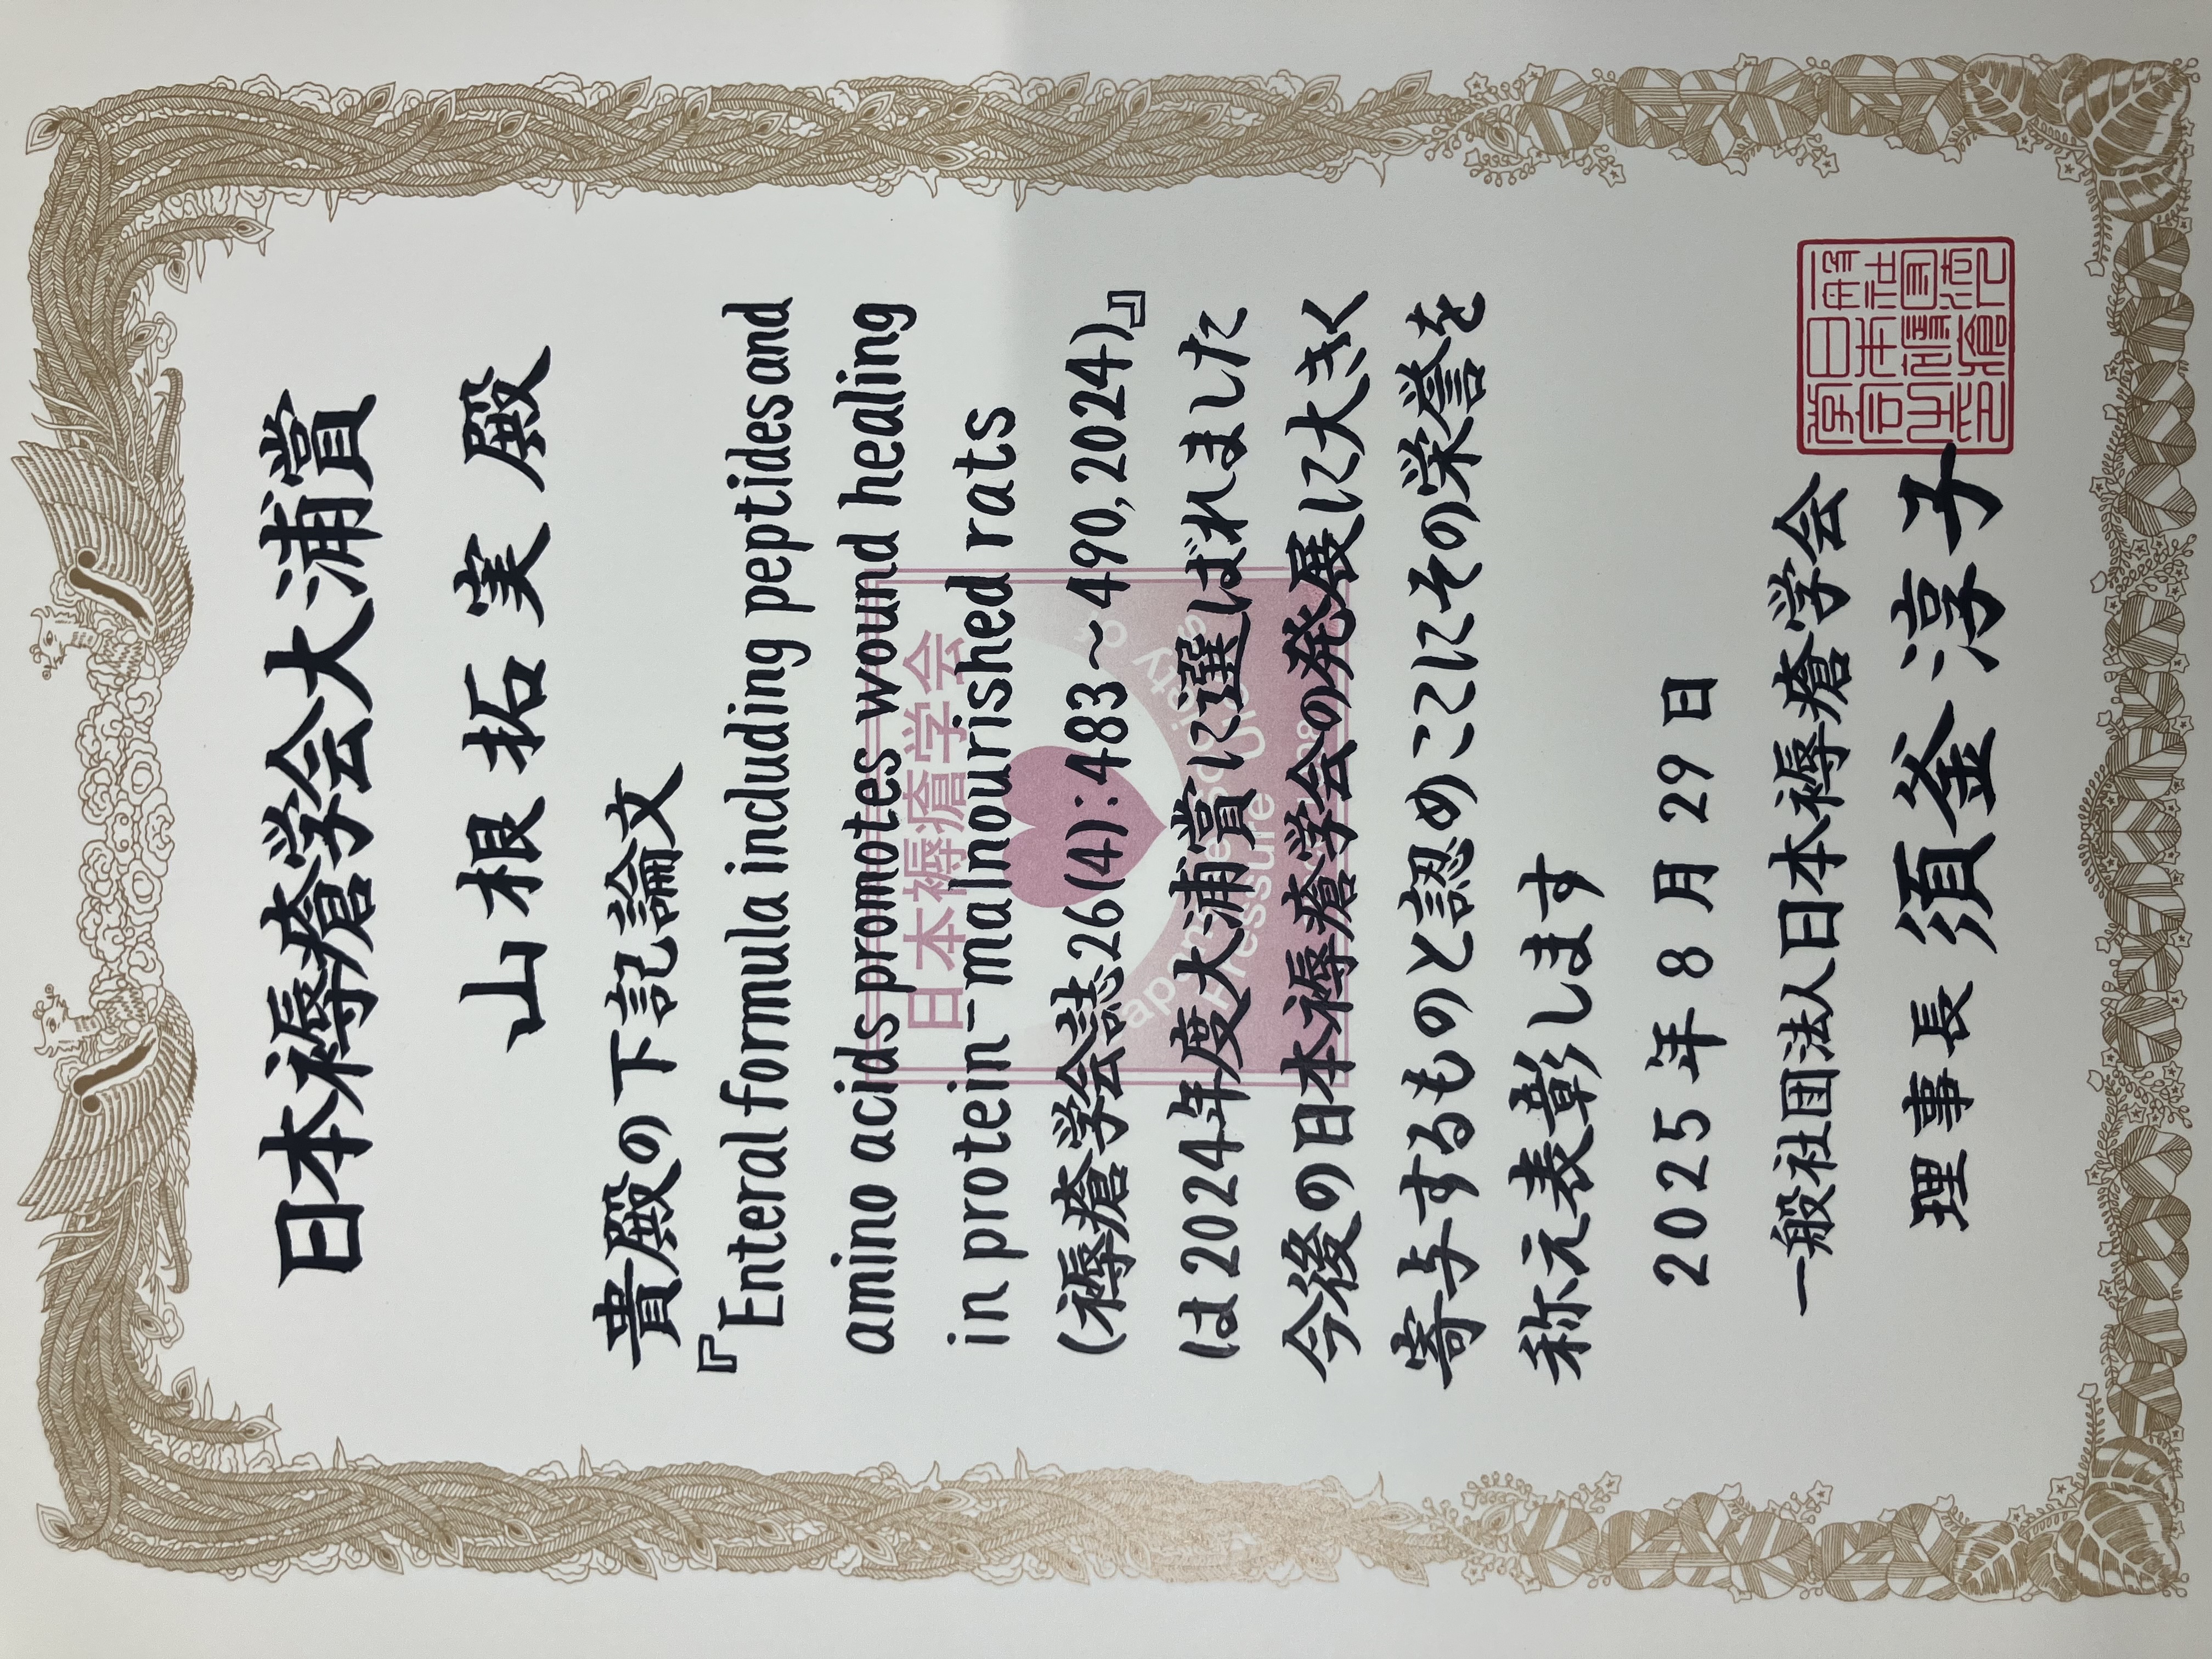 日本褥瘡学会大浦賞
山根拓実 殿
貴殿の下記論文
『Enteral formula including peptides and
amino acids promotes wound healing
in protein-malnourished rats
(褥瘡学会誌26(4):483～490,2024)』
は2024年度大浦賞に選ばれました
今後の日本褥瘡学会の発展に大きく
寄与するものと認めここにその栄誉を
称え表彰します
2025年8月29日
一般社団法人日本褥瘡学会
理事長 須釜淳子
日本褥瘡学会
Pressure